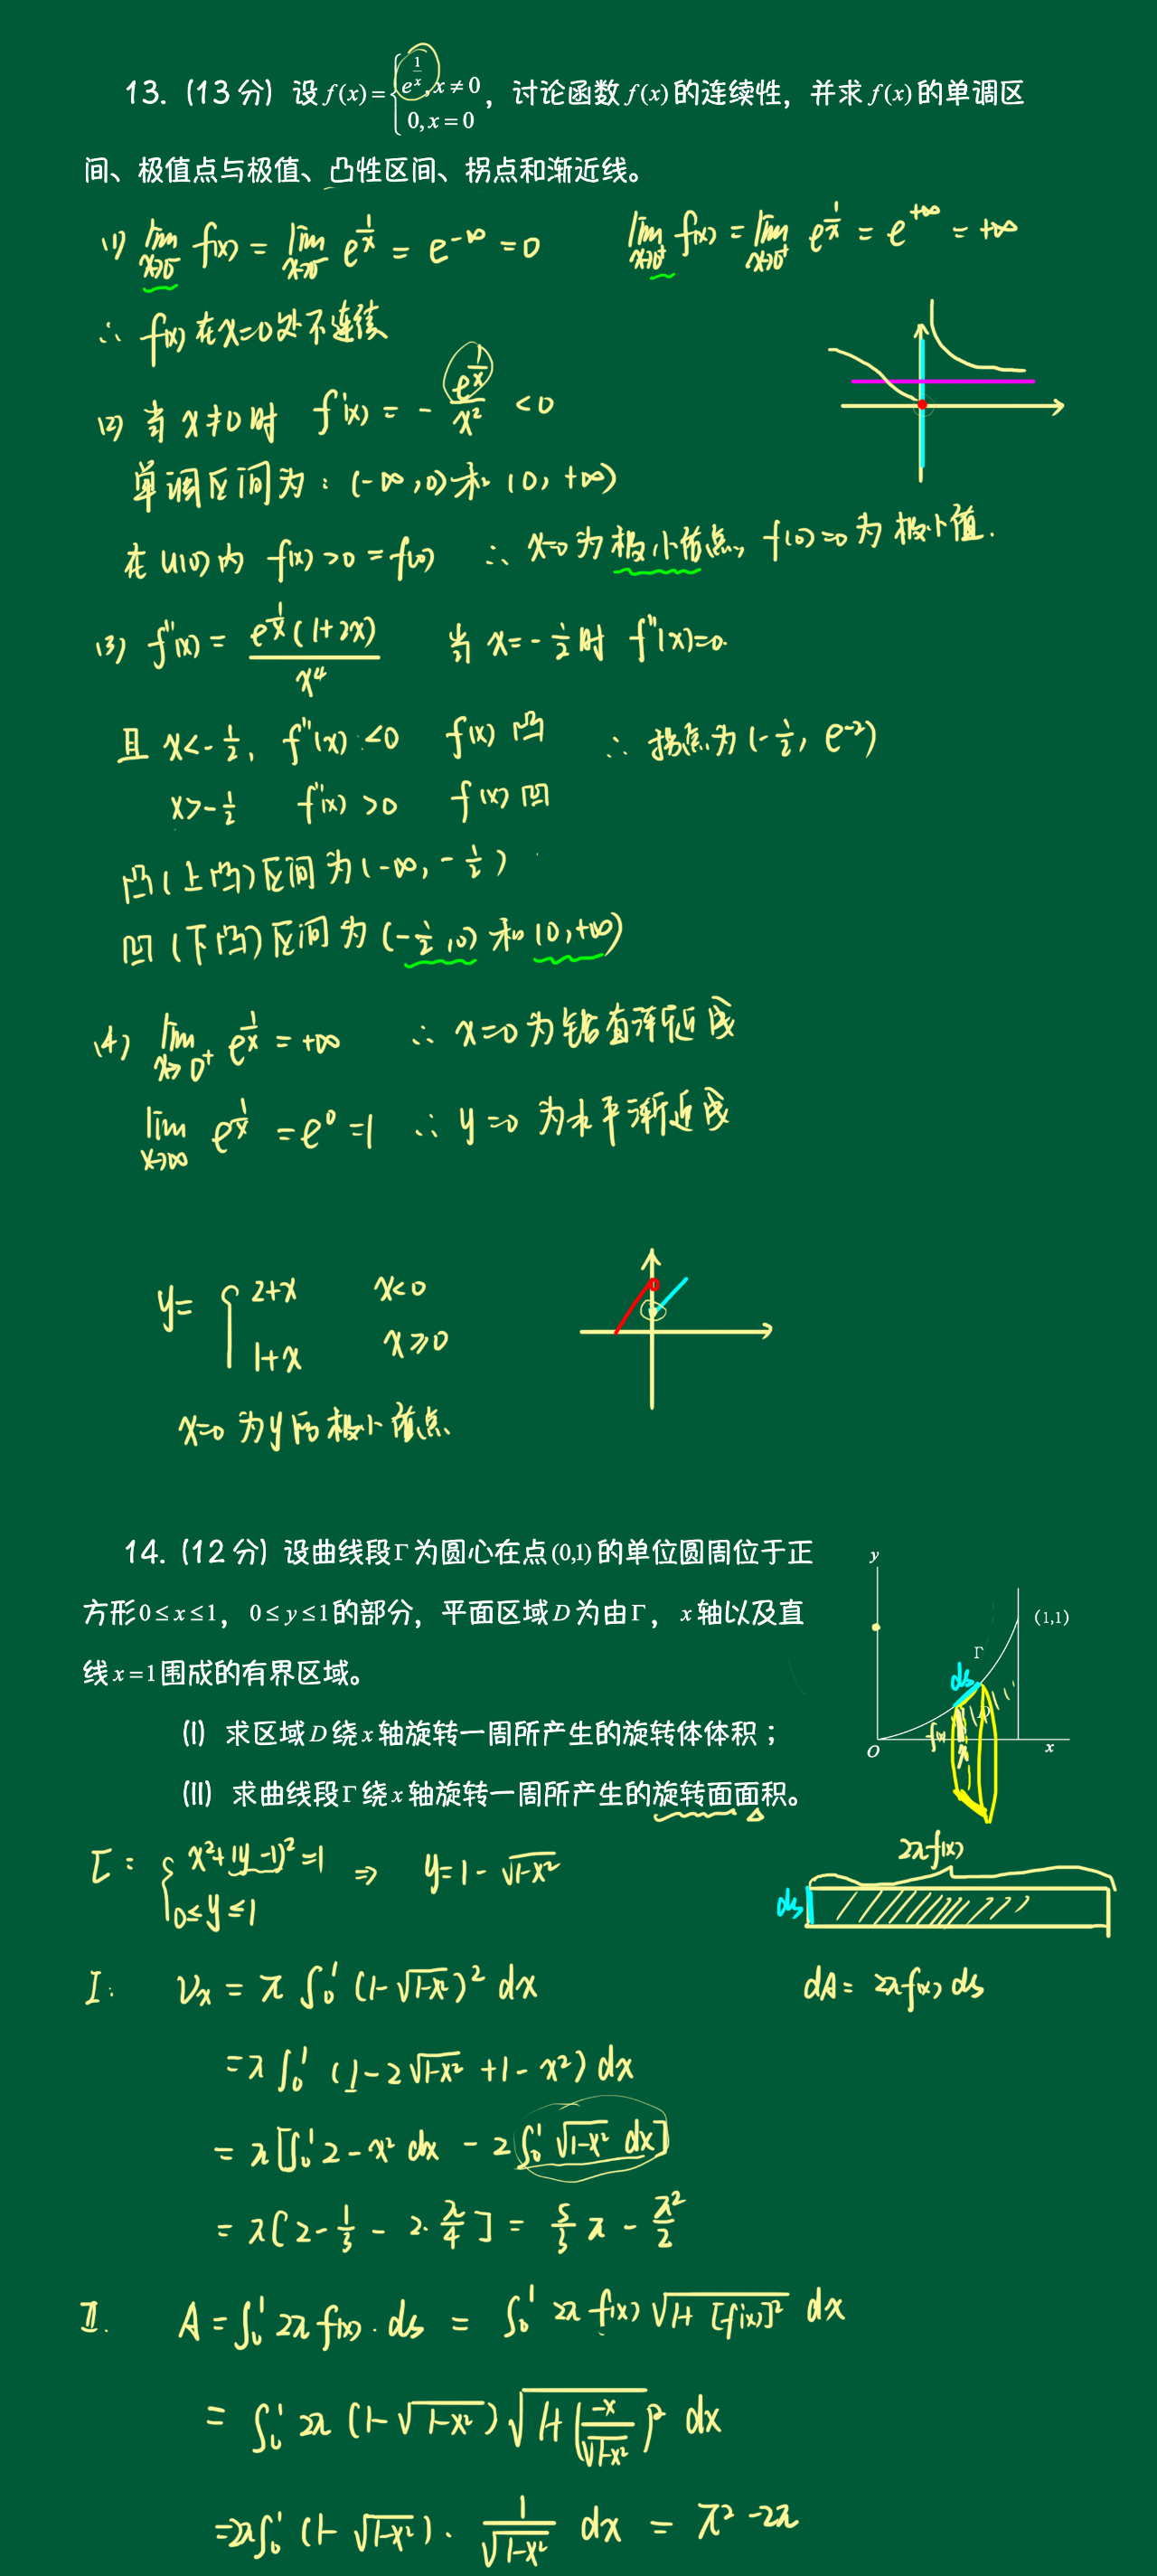 13. (13分) 设 f(x)={e^{1/x}, x≠0; 0, x=0, 讨论函数 f(x) 的连续性，并求 f(x) 的单调区
间、极值点与极值、凸性区间、拐点和渐近线。
(1) lim_{x→0⁻} f(x) = lim_{x→0⁻} e^{1/x} = e^{-∞} = 0   lim_{x→0⁺} f(x) = lim_{x→0⁺} e^{1/x} = e^{+∞} = +∞
∴ f(x) 在 x=0 处不连续
(2) 当 x≠0 时 f'(x) = - e^{1/x}/x² < 0
单调区间为：(-∞,0) 和 (0,+∞)
在 U(0) 内 f(x)>0=f(0) ∴ x=0 为极小值点, f(0)=0 为极小值.
(3) f''(x) = e^{1/x}(1+2x)/x⁴   当 x=-1/2 时 f''(x)=0.
且 x<-1/2, f''(x)<0 f(x) 凸 ∴ 拐点为 (-1/2, e^{-2})
x>-1/2 f''(x)>0 f(x) 凹
凸(上凸)区间为 (-∞, -1/2)
凹(下凸)区间为 (-1/2, 0) 和 (0,+∞)
(4) lim_{x→0⁺} e^{1/x} = +∞ ∴ x=0 为铅直渐近线
lim_{x→∞} e^{1/x} = e⁰ = 1 ∴ y=0 为水平渐近线
y= { 2+x x<0
1+x x≥0
x=0 为 y 的极小值点
14. (12分) 设曲线段 Γ 为圆心在点 (0,1) 的单位圆周位于正
方形 0≤x≤1, 0≤y≤1 的部分，平面区域 D 为由 Γ, x 轴以及直
线 x=1 围成的有界区域。
(I) 求区域 D 绕 x 轴旋转一周所产生的旋转体体积；
(II) 求曲线段 Γ 绕 x 轴旋转一周所产生的旋转面面积。
y
(1,1)
Γ
ds
D
f(x)
O
x
Γ: { x²+(y-1)²=1 ⇒ y=1-√(1-x²)
0≤y≤1
2πf(x)
ds
dA = 2πf(x) ds
I: Vx = π ∫₀¹ (1-√(1-x²))² dx
= π ∫₀¹ (1-2√(1-x²)+1-x²) dx
= π [∫₀¹ 2-x² dx - 2∫₀¹ √(1-x²) dx]
= π [2 - 1/3 - 2·π/4] = 5/3 π - π²/2
II. A = ∫₀¹ 2πf(x)·ds = ∫₀¹ 2πf(x) √(1+[f'(x)]²) dx
= ∫₀¹ 2π (1-√(1-x²)) √(1+(-x/√(1-x²))²) dx
= 2π∫₀¹ (1-√(1-x²))· 1/√(1-x²) dx = π²-2π